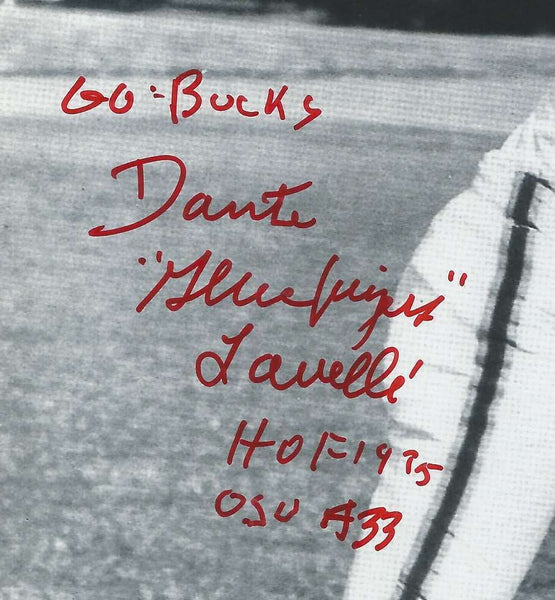 GO-BUCKS
Dante
"Gluefingers"
Lavelli
HOF 1975
OSU #33